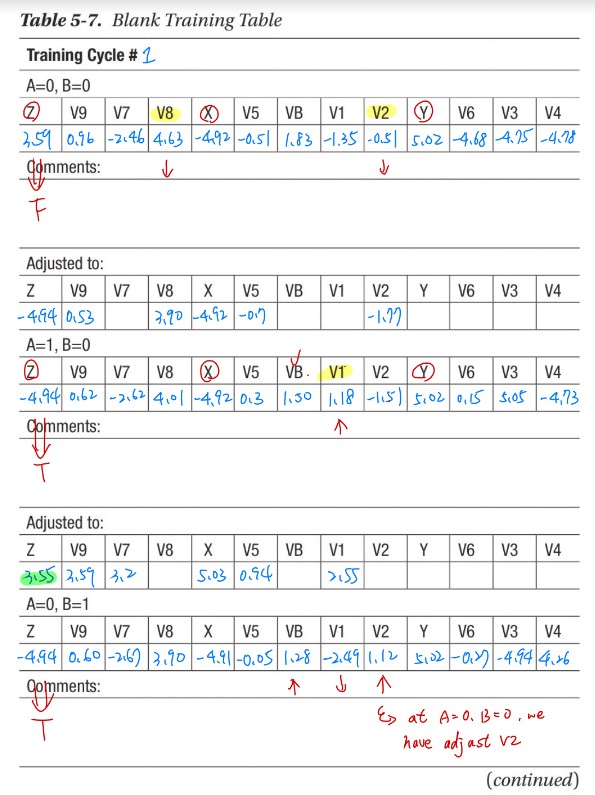 Table 5-7. Blank Training Table
Training Cycle # 1
A=0, B=0
Z V9 V7 V8 X V5 VB V1 V2 Y V6 V3 V4
3.59 0.96 -2.46 4.63 -4.92 -0.51 1.83 -1.35 -0.51 5.02 -4.68 -4.75 -4.78
Comments: ↓ ↓
F
Adjusted to:
Z V9 V7 V8 X V5 VB V1 V2 Y V6 V3 V4
-4.94 0.53 3.90 -4.92 -0.7 -1.77
A=1, B=0
Z V9 V7 V8 X V5 VB V1 V2 Y V6 V3 V4
-4.94 0.62 -2.62 4.01 -4.92 0.3 1.30 1.18 -1.51 5.02 0.15 5.05 -4.73
Comments: ↑
T
Adjusted to:
Z V9 V7 V8 X V5 VB V1 V2 Y V6 V3 V4
3.55 3.59 3.2 5.03 0.94 2.55
A=0, B=1
Z V9 V7 V8 X V5 VB V1 V2 Y V6 V3 V4
-4.94 0.60 -2.67 3.90 -4.91 -0.05 1.28 -2.49 1.12 5.02 -0.27 -4.94 4.26
Comments: ↑ ↓ ↑
T
at A=0, B=0, we
have adjust V2
(continued)